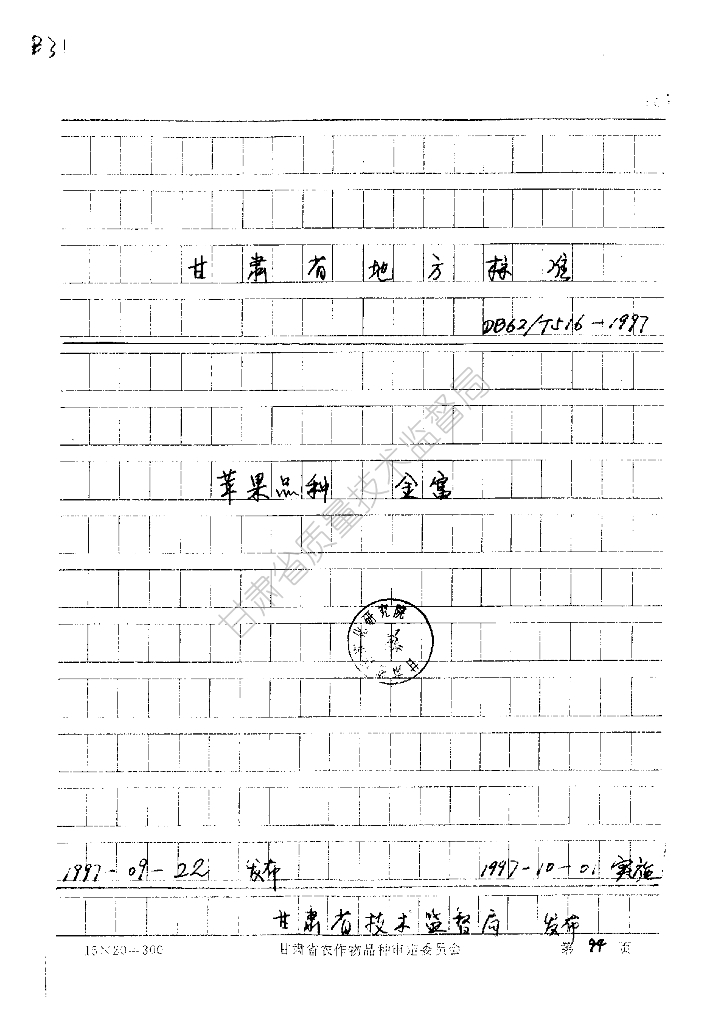 B31
甘肃省地方标准
DB62/T516-1997
苹果品种 金富
甘肃省质量技术监督局
化研究院
1997-09-22 发布 1997-10-01 实施
甘肃省技术监督局 发布
15×20-300 甘肃省农作物品种审定委员会 第 94 页